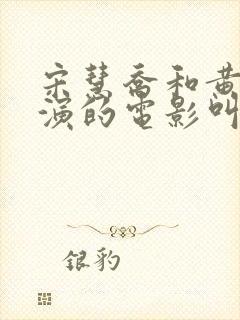 宋慧乔和黄
演的电影叫
银豹